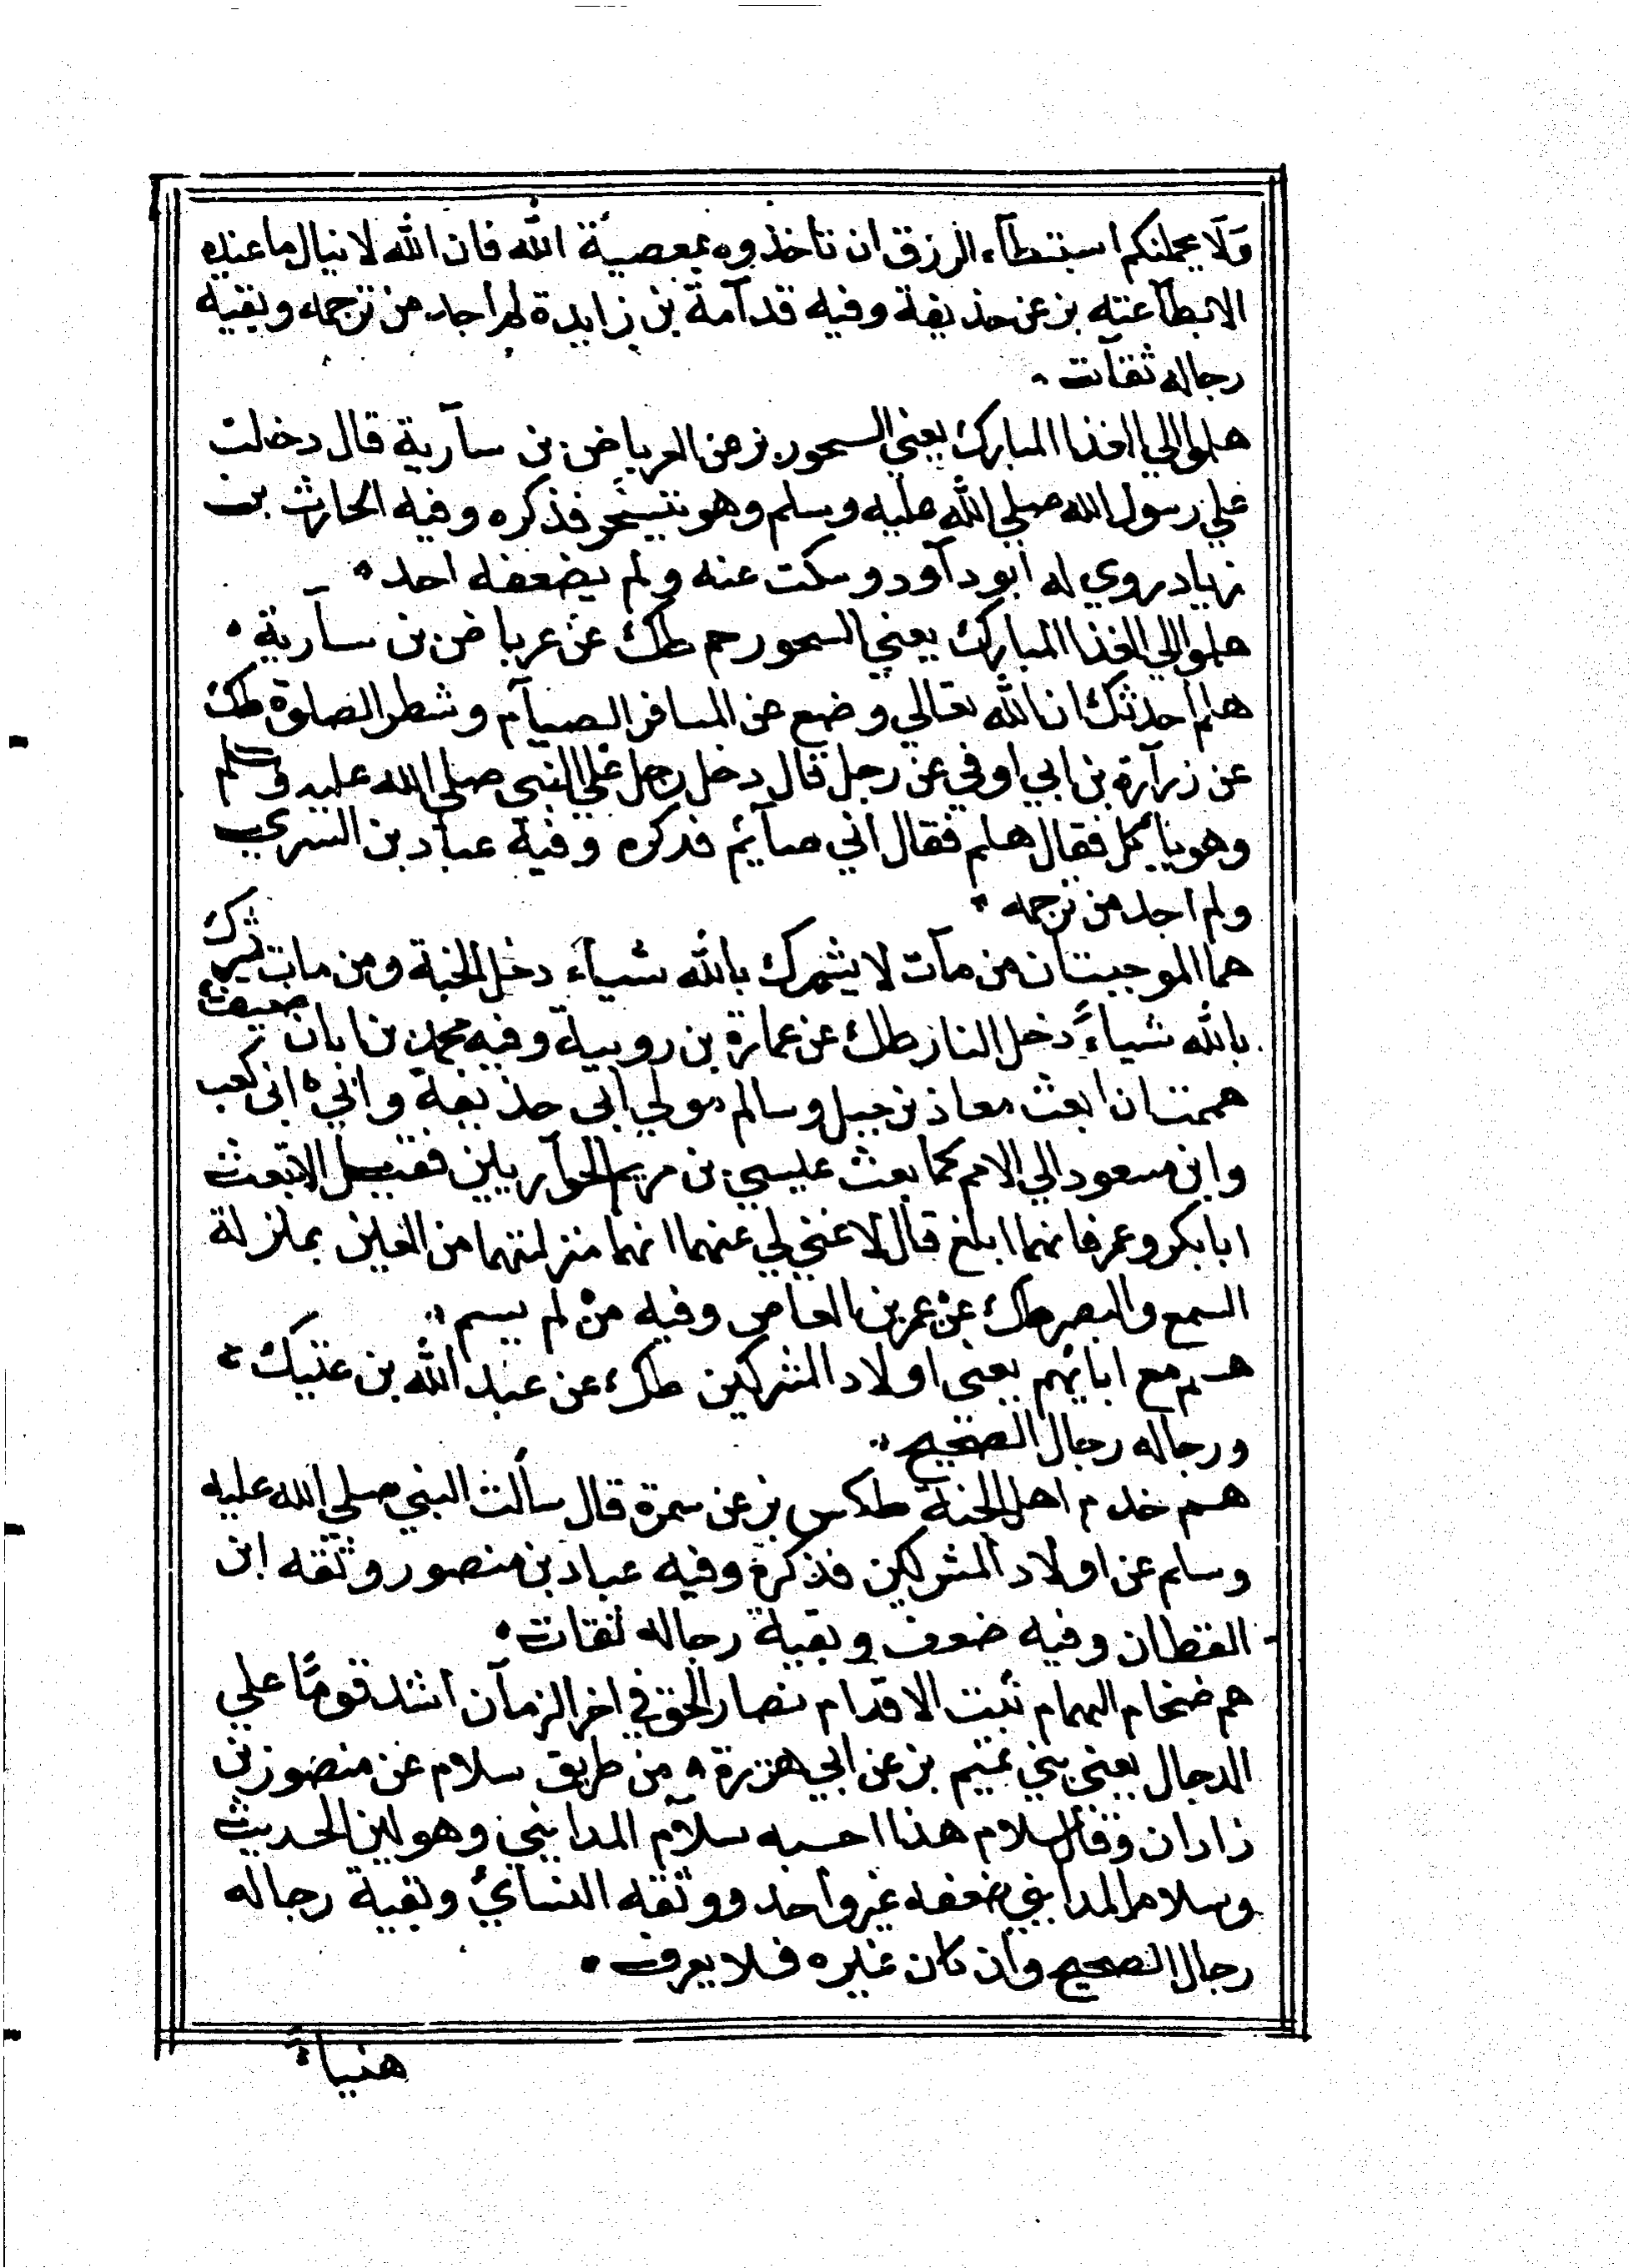 ولا يحملنكم استبطآء الرزق ان تاخذوه بمعصية الله فان الله لا ينال ما عنده
الا بطآعته بز عن حذيفة وفيه قدآمة بن زايدة لم اجد من ترجمه وبقية
رجاله ثقآت
هلموا الي الغذا المبارك يعني السحور بز عن العرباض بن سآرية قال دخلت
علي رسول الله صلي الله عليه وسلم وهو يتسحر فذكره وفيه الحارث بن
زياد روي له ابو دآود وسكت عنه ولم يضعفه احد
هلموا الي الغذا المبارك يعني السحور حم طك عن عرباض بن سآرية
هلم احدثك ان الله تعالي وضع عن المسافر الصيآم وشطر الصلوة طك
عن زرآرة بن ابي اوفي عن رجل قال دخل رجل علي النبي صلي الله عليه وسلم
وهو ياكل فقال هلم فقال اني صآيم فذكره وفيه عباد بن السري
ولم اجد من ترجمه
هما الموجبتان من مآت لا يشرك بالله شيآء دخل الجنة ومن مات يشرك
بالله شياءً دخل النار طك عن عمارة بن رويبة وفيه محمد بن ابان ضعيف
هممت ان ابعث معاذ بن جبل وسالم مولي ابي حذيفة وابي ابن كعب
وابن مسعود الي الامم كما بعث عيسي بن مريم الحوآريين فقيل الا تبعث
ابا بكر وعمر فانهما ابلغ قال لا غني لي عنهما انهما منزلتهما من العين بمنزلة
السمع والبصر طك عن عمر بن العاص وفيه من لم يسم
هم مع ابائهم يعني اولاد المشركين طك عن عبد الله بن عتيك
ورجاله رجال الصحيح
هم خدم اهل الجنة طكس بز عن سمرة قال سألت النبي صلي الله عليه
وسلم عن اولاد المشركين فذكره وفيه عباد بن منصور وثقه ابن
القطان وفيه ضعف وبقية رجاله ثقات
هم ضخام الهمام ثبت الاقدام نصار الحق في اخر الزمآن اشد قومًا علي
الدجال يعني بني تميم بز عن ابي هريرة من طريق سلام عن منصور بن
زادان وقال سلام هذا احسبه سلآم المدايني وهو لين الحديث
وسلام المدايني ضعفه غير وآحد ووثقه النسائ وبقية رجاله
رجال الصحيح وان كان غيره فلا يعرف
هنياءً